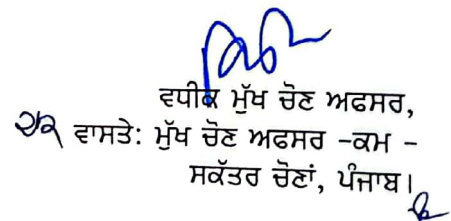 ਵਧੀਕ ਮੁੱਖ ਚੋਣ ਅਫਸਰ,
ਵਾਸਤੇ: ਮੁੱਖ ਚੋਣ ਅਫਸਰ -ਕਮ -
ਸਕੱਤਰ ਚੋਣਾਂ, ਪੰਜਾਬ।